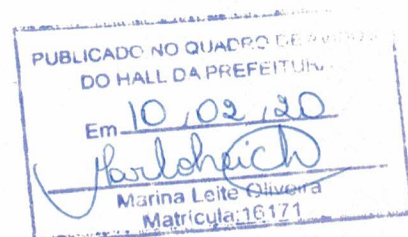 PUBLICADO NO QUADRO DE
DO HALL DA PREFEITURA
Em 10 / 02 / 20
Marina Leite Oliveira
Matrícula: 16171